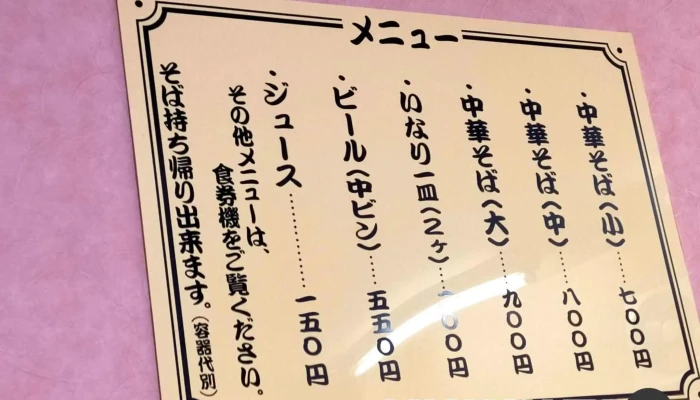 メニュー
・中華そば(小)……七〇〇円
・中華そば(中)……八〇〇円
・中華そば(大)……九〇〇円
・いなり一皿(2ヶ)……〇〇円
・ビール(中ビン)……五五〇円
・ジュース…………一五〇円
その他メニューは、
食券機をご覧ください。
そば持ち帰り出来ます。(容器代別)